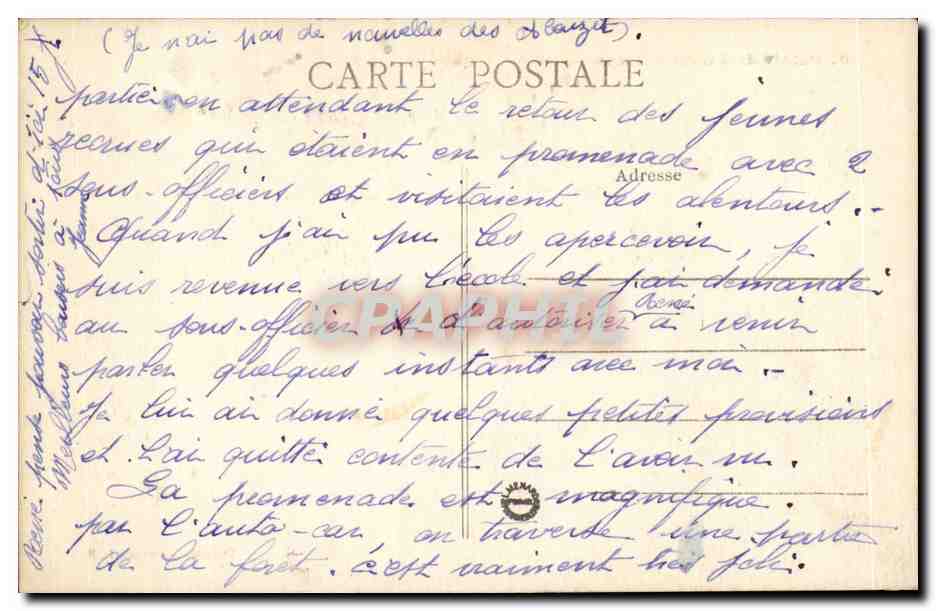 (Je n'ai pas de nouvelles des Abauzet).
CARTE POSTALE
partie en attendant le retour des jeunes
recrues qui étaient en promenade avec 2
Adresse
sous-officiers et visitaient les alentours.-
Quand j'ai pu les apercevoir, je
suis revenue vers l'école et j'ai demandé
au sous-officier d'autoriser René à venir
parler quelques instants avec moi.-
Je lui ai donné quelques petites provisions
et l'ai quitté contente de l'avoir vu.
La promenade est magnifique.
par l'auto-car, on traverse une partie
de la forêt. c'est vraiment très joli.
René pense pouvoir sortir d'ici 15 jrs
Meilleurs baisers à tous
Jeanne
CPARHAMA